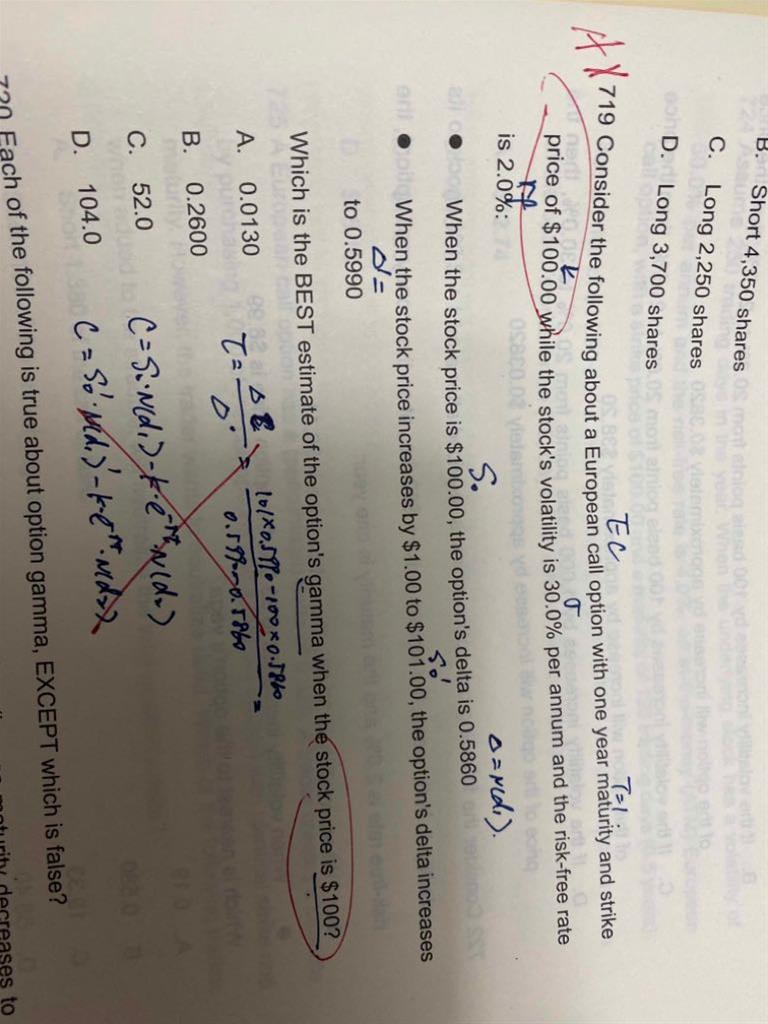 B. Short 4,350 shares
C. Long 2,250 shares
D. Long 3,700 shares
EC T=1
719 Consider the following about a European call option with one year maturity and strike
k σ
price of $100.00 while the stock's volatility is 30.0% per annum and the risk-free rate
rf
is 2.0%:
S₀ Δ=N(d₁).
● When the stock price is $100.00, the option's delta is 0.5860
S₀'
● When the stock price increases by $1.00 to $101.00, the option's delta increases
Δ'=
to 0.5990
Which is the BEST estimate of the option's gamma when the stock price is $100?
A. 0.0130
B. 0.2600
C. 52.0
D. 104.0
101×0.5990-100×0.5860
0.5990-0.5860
C=S₀·N(d₁)-k·e⁻ʳᵀ·N(d₂)
C=S₀'·N(d₁)'-k·e⁻ʳᵀ·N(d₂)
720 Each of the following is true about option gamma, EXCEPT which is false?
maturity decreases to